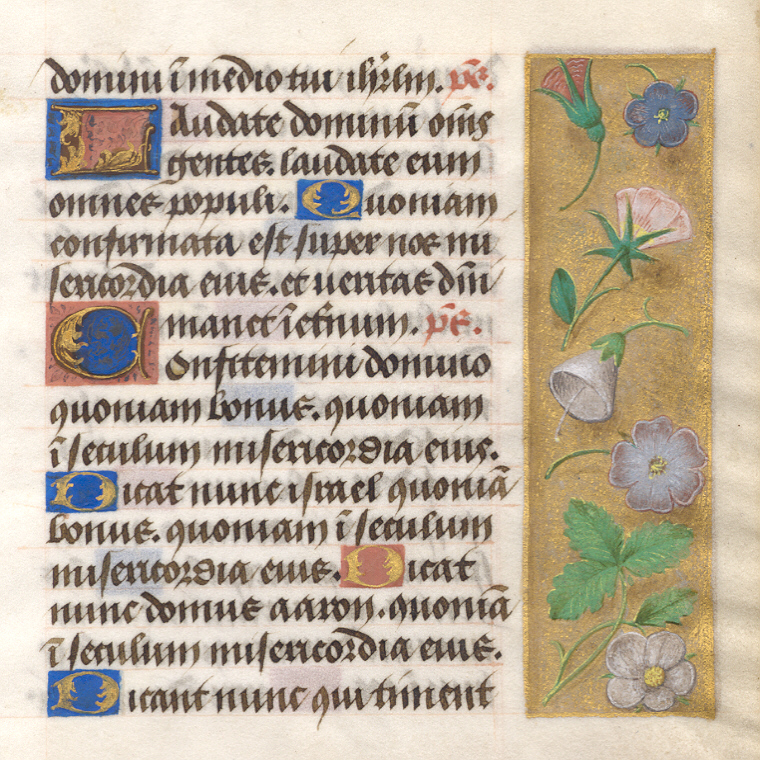 domini ī medio tui ihrlm. ps̄.
Laudate dominū om̄s
gentes. laudate eum
omnes populi. Quoniam
confirmata est super nos mi
sericordia eius. et ueritas dn̄i
manet ī etr̄num. ps̄.
Confitemini domino
quoniam bonus. quoniam
ī seculum misericordia eius.
Dicat nunc israel quoniā
bonus. quoniam ī seculum
misericordia eius. Dicat
nunc domus aaron. quoniā
ī seculum misericordia eius.
Dicant nunc qui timent